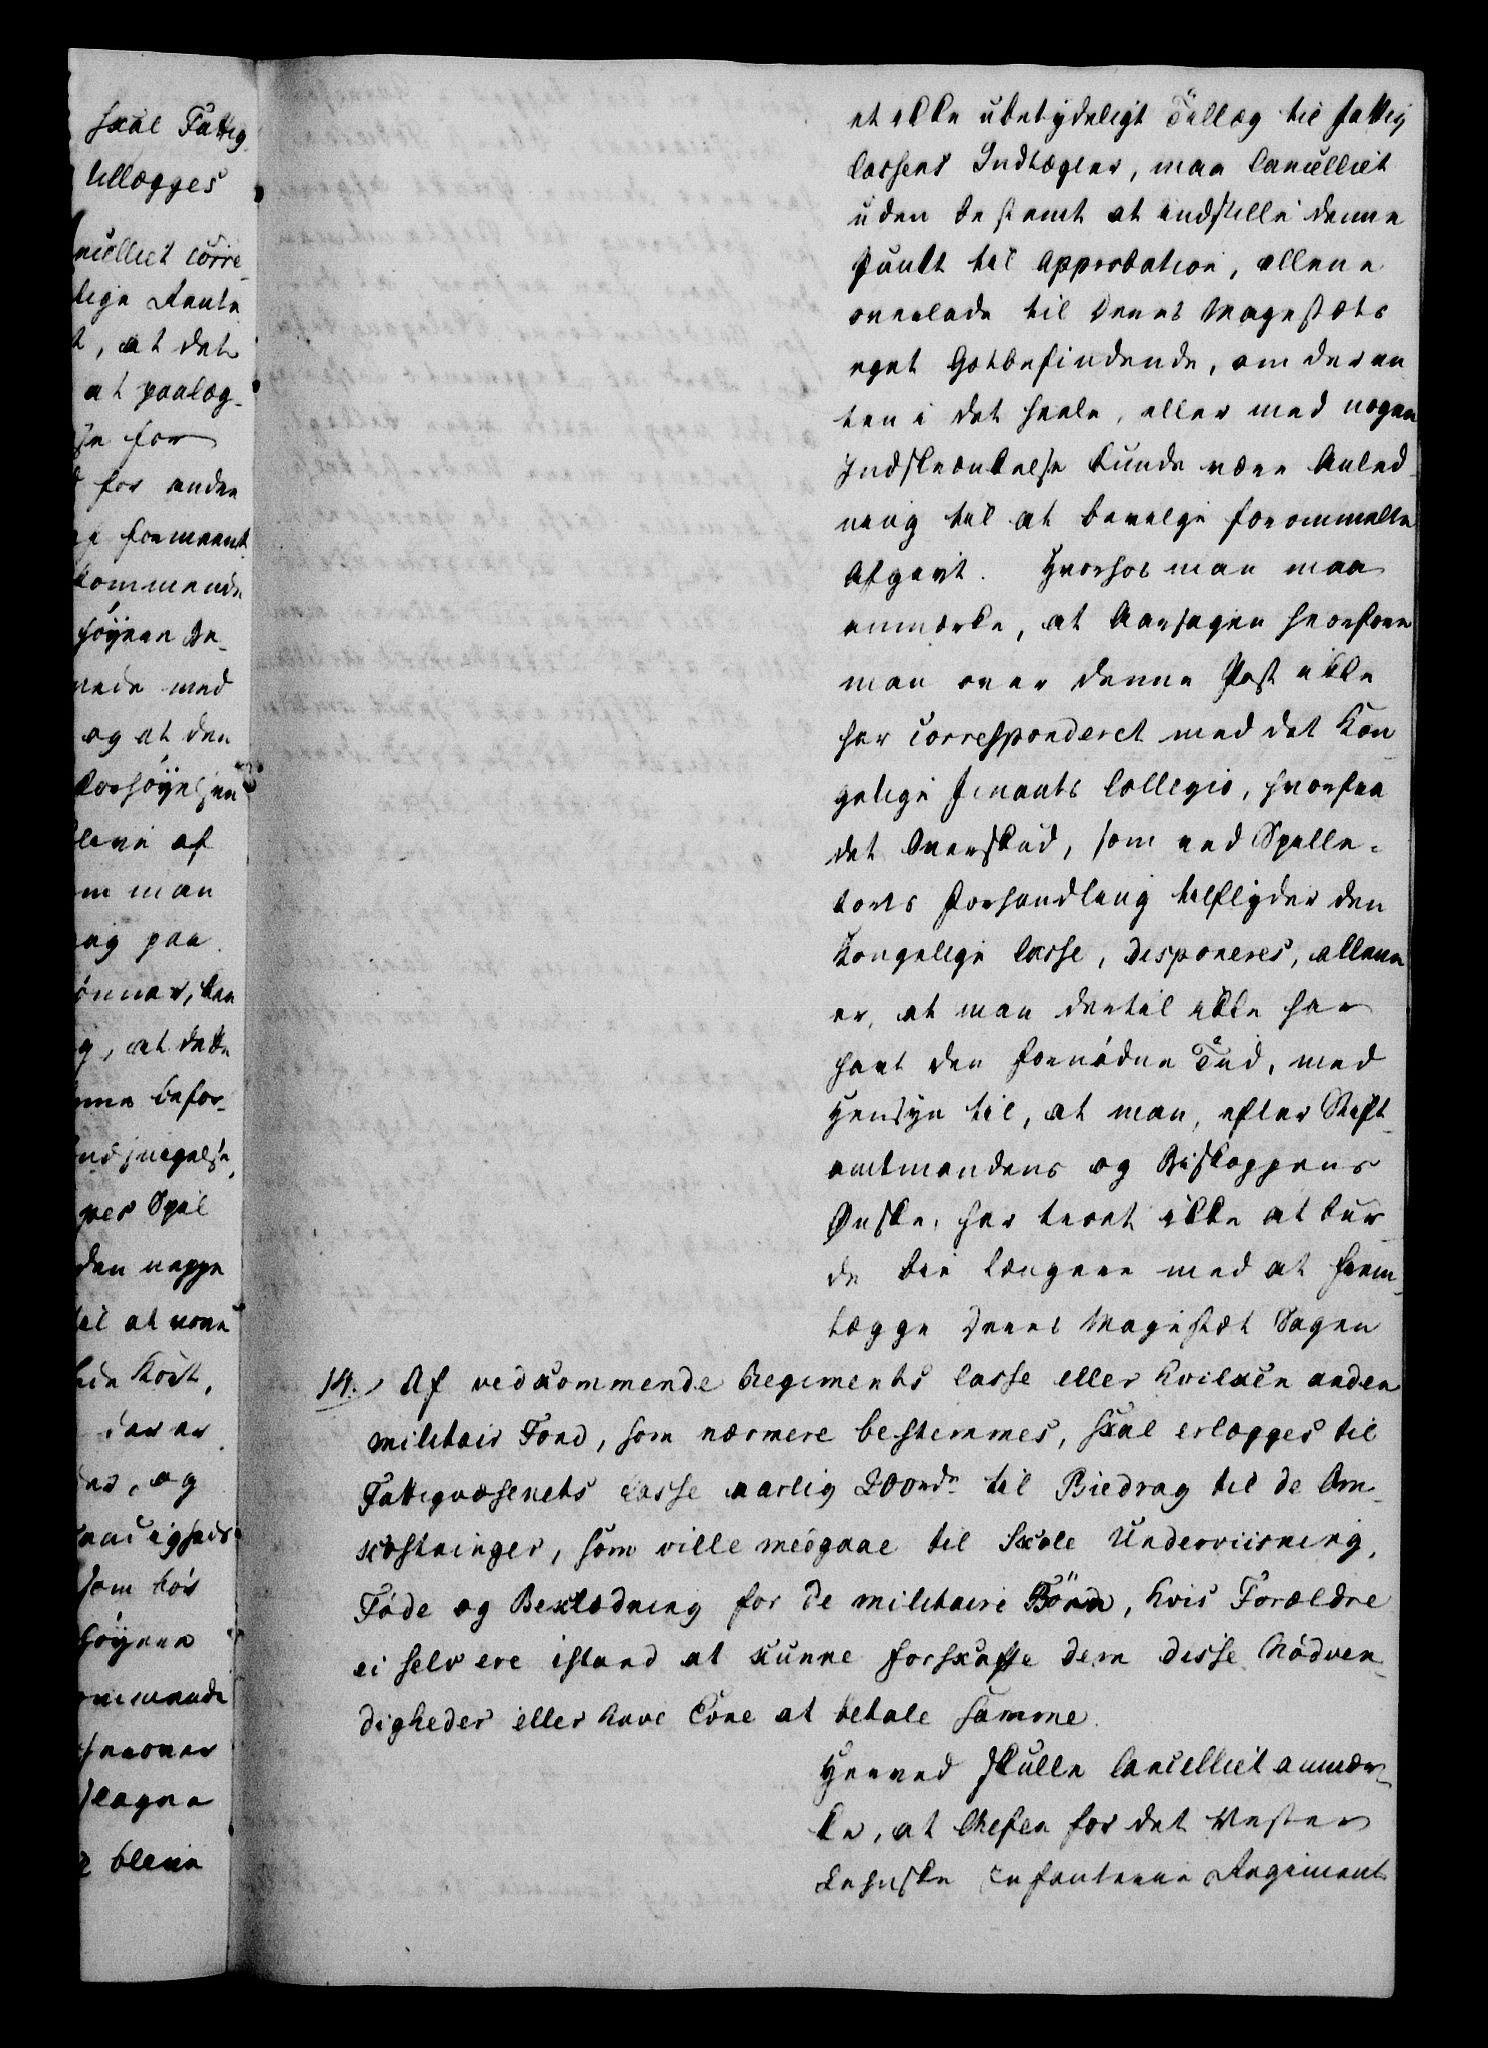 skal Fattig
tillægges
ncelliet corre-
lige Rente
t, at det
at paalæg-
se for
d for anden
formeent
kommende
høyere Be-
nede med
og at den
Forhøyelsen
bleve af
om man
sig paa
önner, kan
g, at dette
befor-
per Spil
den neppe
til at være
de Kort,
der er
er, og
som bör
höyere
ommende
slagne
blevne
et ikke ubetydeligt Tillæg til Fattig
Cassens Indtægter, maa Cancelliet
uden bestemt at indstille denne
Punkt til Approbation, allene
overlade til Deres Majestæts
eget Gotbefindende, om der en
ten i det heele, eller med nogen
Indskrænkelse kunde være Anled-
ning til at bevilge forommelte
Afgivt. Hvorhos man maa
anmærke, at Aarsagen hvorfore
man over denne Post ikke
har correspondered med det Kon
gelige Finants Collegio, hvorfra
det Overskud, som ved Spille-
korts Forhandling tilflyder den
Kongelige Casse, disponeres, allene
er, at man dertil ikke har
havt den fornödne Tid, med
Hensyn til, at man, efter Stift-
amtmandens og Biskoppens
Ønske, har troet ikke at bur
de bie længere med at frem-
lægge Deres Majestæt Sagen
14., Af vedkommende Regiments Casse eller hvilken anden
militair Fond, som nærmere bestemmes, skal erlægges til
Fattigvæsenets Casse aarlig 200rdr til Biedrag til de Om-
kostninger, som ville medgaae til Skole Underviisning,
Föde og Beklædning for de militaire Börn, hvis Forældre
ei selv ere istand at kunne forskaffe dem disse Nödven-
digheder eller have Evne at betale samme.
Herved skulle Cancelliet anmær-
ke, at Chefen for det Vester
Lehnske Infanterie Regiment